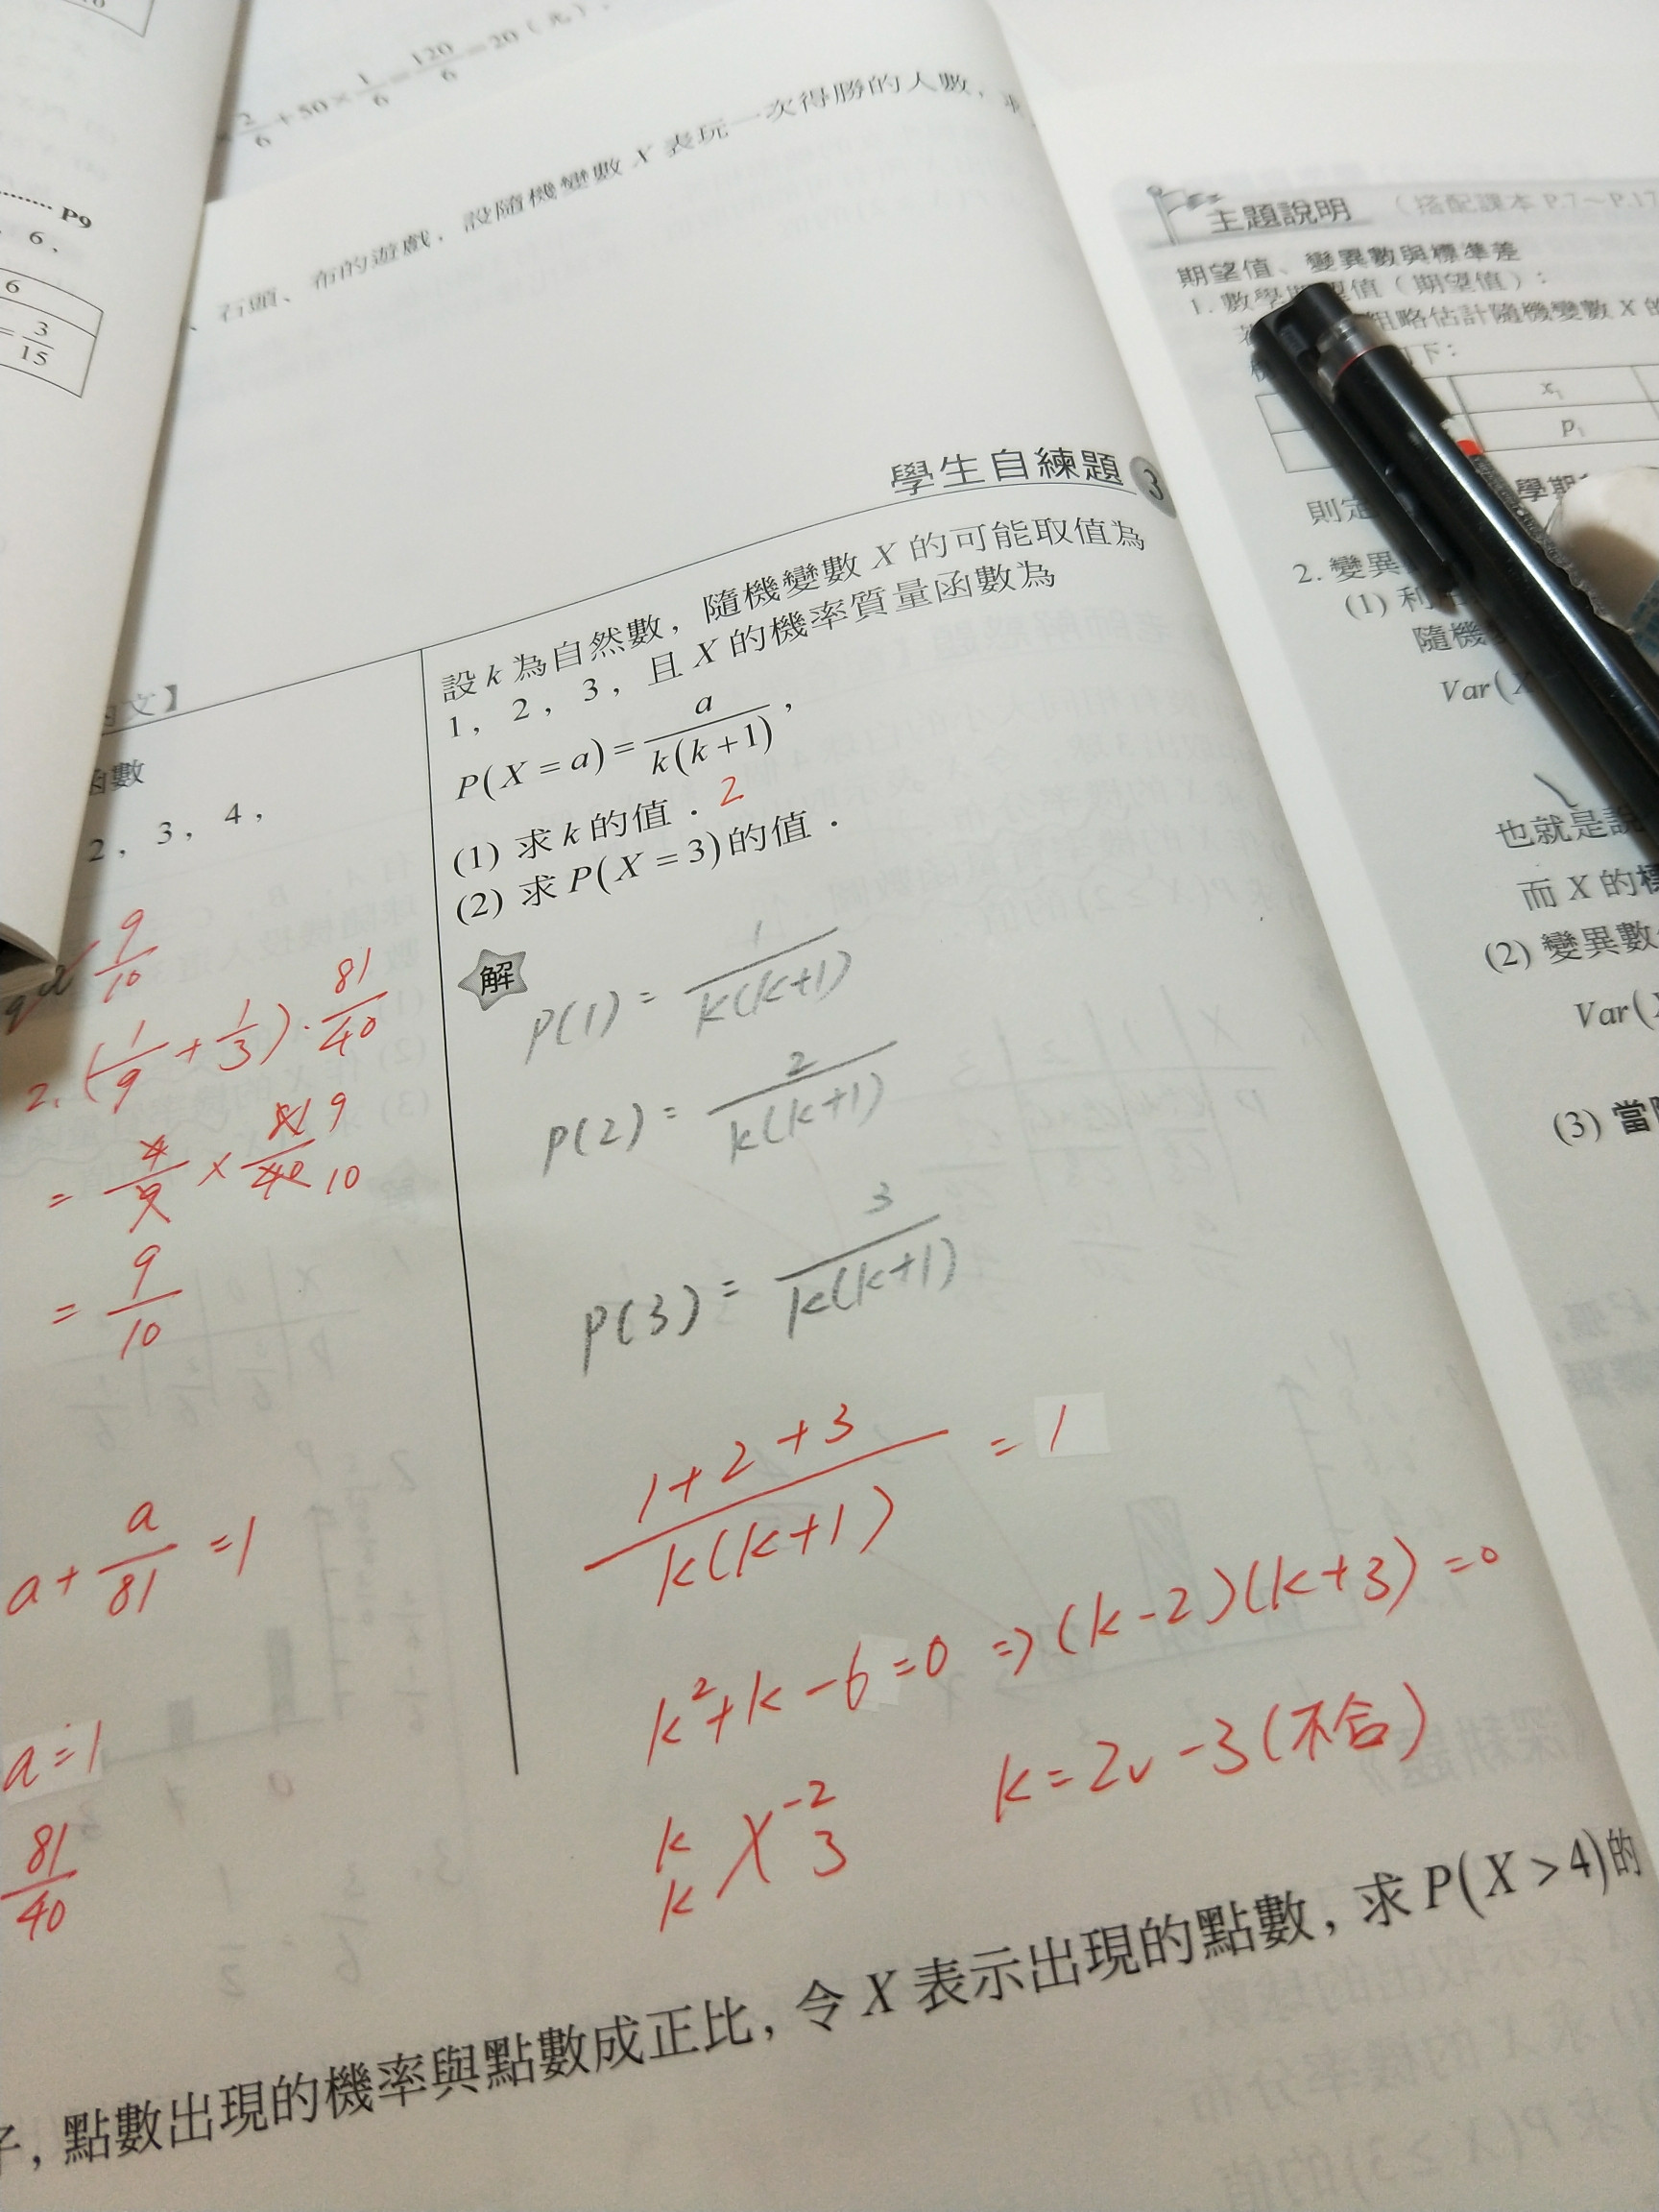 2/6 + 50 × 1/6 = 120/6 = 20（元）.
、石頭、布的遊戲，設隨機變數 X 表玩一次得勝的人數，
P9
6，
6
= 3/15
學生自練題 3
設 k 為自然數，隨機變數 X 的可能取值為
1，2，3，且 X 的機率質量函數為
P(X = a) = a/k(k+1)，
(1) 求 k 的值． 2
(2) 求 P(X = 3) 的值．
解
P(1) = 1/k(k+1)
P(2) = 2/k(k+1)
P(3) = 3/k(k+1)
1+2+3/k(k+1) = 1
k²+k-6=0 ⇒ (k-2)(k+3)=0
k -2
k 3
k=2∨-3(不合)
文】
函數
2，3，4，
9/10
2. (1/9 + 1/3)·81/40
= 4/9 × 81/40 9 10
= 9/10
a + a/81 = 1
a = 1
81/40
，點數出現的機率與點數成正比，令 X 表示出現的點數，求 P(X > 4)的
主題說明 （搭配課本 P.7～P.17
期望值、變異數與標準差
1. 數學期望值（期望值）：
粗略估計隨機變數 X 的
下：
x₁
p₁
則定
學期
2. 變異
(1) 利
隨機
Var(X
也就是說
而 X 的標
(2) 變異數
Var(X
(3) 當